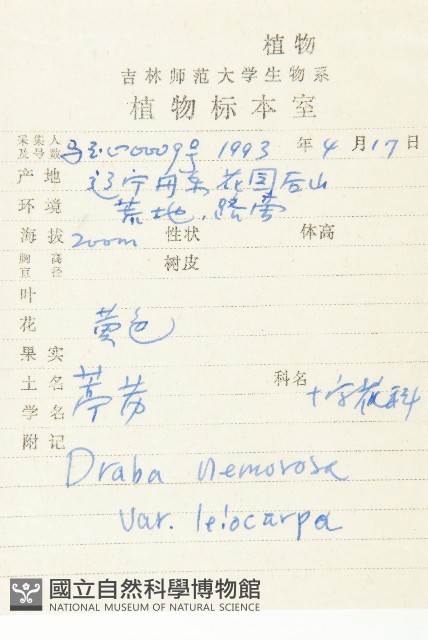 植物
吉林师范大学生物系
植物标本室
采集人及号数 0009号 1993年4月17日
产地 辽宁丹东花园后山
环境 荒地.路旁
海拔 200m 性状 体高
胸高直径 树皮
叶
花 黄色
果实
土名 葶苈 科名 十字花科
学名
附记
Draba nemorosa
var. leiocarpa
國立自然科學博物館
NATIONAL MUSEUM OF NATURAL SCIENCE